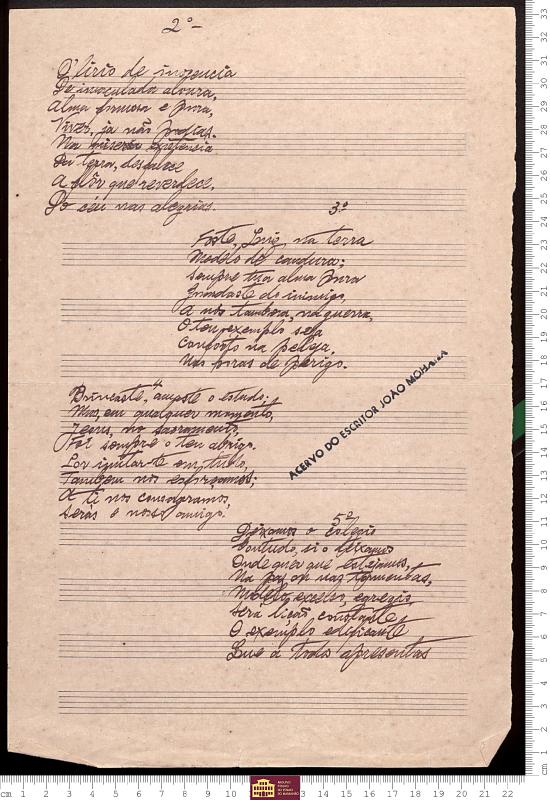 2º-
O' lirio de inocencia
De inaculada alvura,
Alma formosa e pura,
Viver, ja não podias.
Na miseria existencia
Da terra, desmece
A flôr que reverdece,
Do céu nas alegrias.
3.º
Foste, Luis, na terra
Modelo de candura;
Sempre tua alma pura
Guardaste do inimigo,
A nós tambem, na guerra,
O teu exemplo seja
Conforto na peleja,
Nas horas de perigo.
4
Brincaste, amaste o estudo;
Mas, em qualquer momento,
Jesus, no sacramento,
Foi sempre o teu abrigo.
Por imitar-te em tudo,
Tambem nos esforçamos;
A ti nos consagramos,
Serás o nosso amigo.
5º
Deixamos o colegio
Contudo, si o deixamos
Onde quer que estejamos,
Na paz ou nas tormentas,
Modelo, excelso, egregio,
Será lição constante,
O exemplo edificante
Que a todos apresentas
ACERVO DO ESCRITOR JOÃO MOHANA